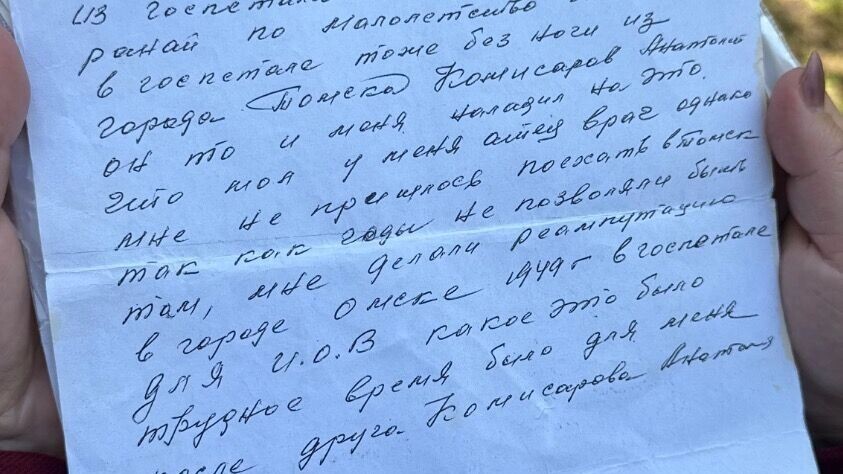 из госпетал
ранай по малолетство
в госпетале тоже без ноги из
города Томска Комисаров Анатолий
он то и меня наладил на это.
что мол у меня отец врач однако
мне не пришлось поехать в Томск
так как годы не позволяли быть
там, мне делали реампутацию
в городе Омске 1949 г в госпетале
для И.О.В какое это было
трудное время было для меня
после друга Комисарова Анатолия